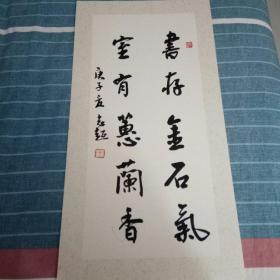 書存金石氣
室有蕙蘭香
庚子夏